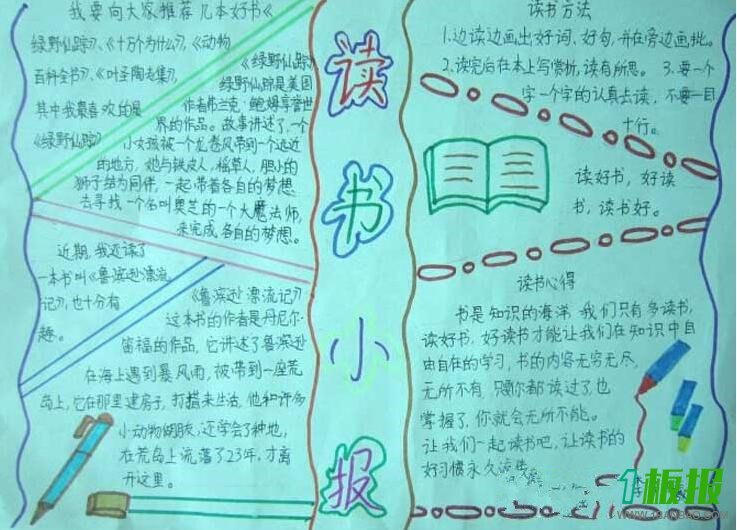 我要向大家推荐几本好书《
绿野仙踪》、《十万个为什么》、《动物
百科全书》、《叶圣陶专集》,
其中我最喜欢的是
《绿野仙踪》
《绿野仙踪》
绿野仙踪是美国
作者弗兰克·鲍姆享誉世
界的作品。故事讲述了,一个
小女孩被一个龙卷风带到一个遥远
的地方,她与铁皮人,稻草人,胆小的
狮子结为同伴,一起带着各自的梦想
去寻找一个名叫奥芝的一个大魔法师,
来完成各自的梦想。
近期,我还读了
一本书叫《鲁滨逊漂流
记》,也十分有
趣。
《鲁滨逊漂流记》
这本书的作者是丹尼尔·
笛福的作品,它讲述了鲁滨逊
在海上遇到暴风雨,被带到一座荒
岛上,它在那里建房子,打猎来生活,他和许多
小动物做朋友,还学会了种地,
在荒岛上流落了23年,才离
开这里。
读
书
小
报
读书方法
1.边读边画出好词、好句,并在旁边画批。
2.读完后在本上写赏析,读有所思。 3.要一个
字一个字的认真去读,不要一目
十行。
读好书,好读
书,读书好。
读书心得
书是知识的海洋,我们只有多读书,
读好书,好读书才能让我们在知识中自
由自在的学习,书的内容无穷无尽,
无所不有,只要你都读过了,也
掌握了,你就会无所不能。
让我们一起读书吧,让读书的
好习惯永久流
板报